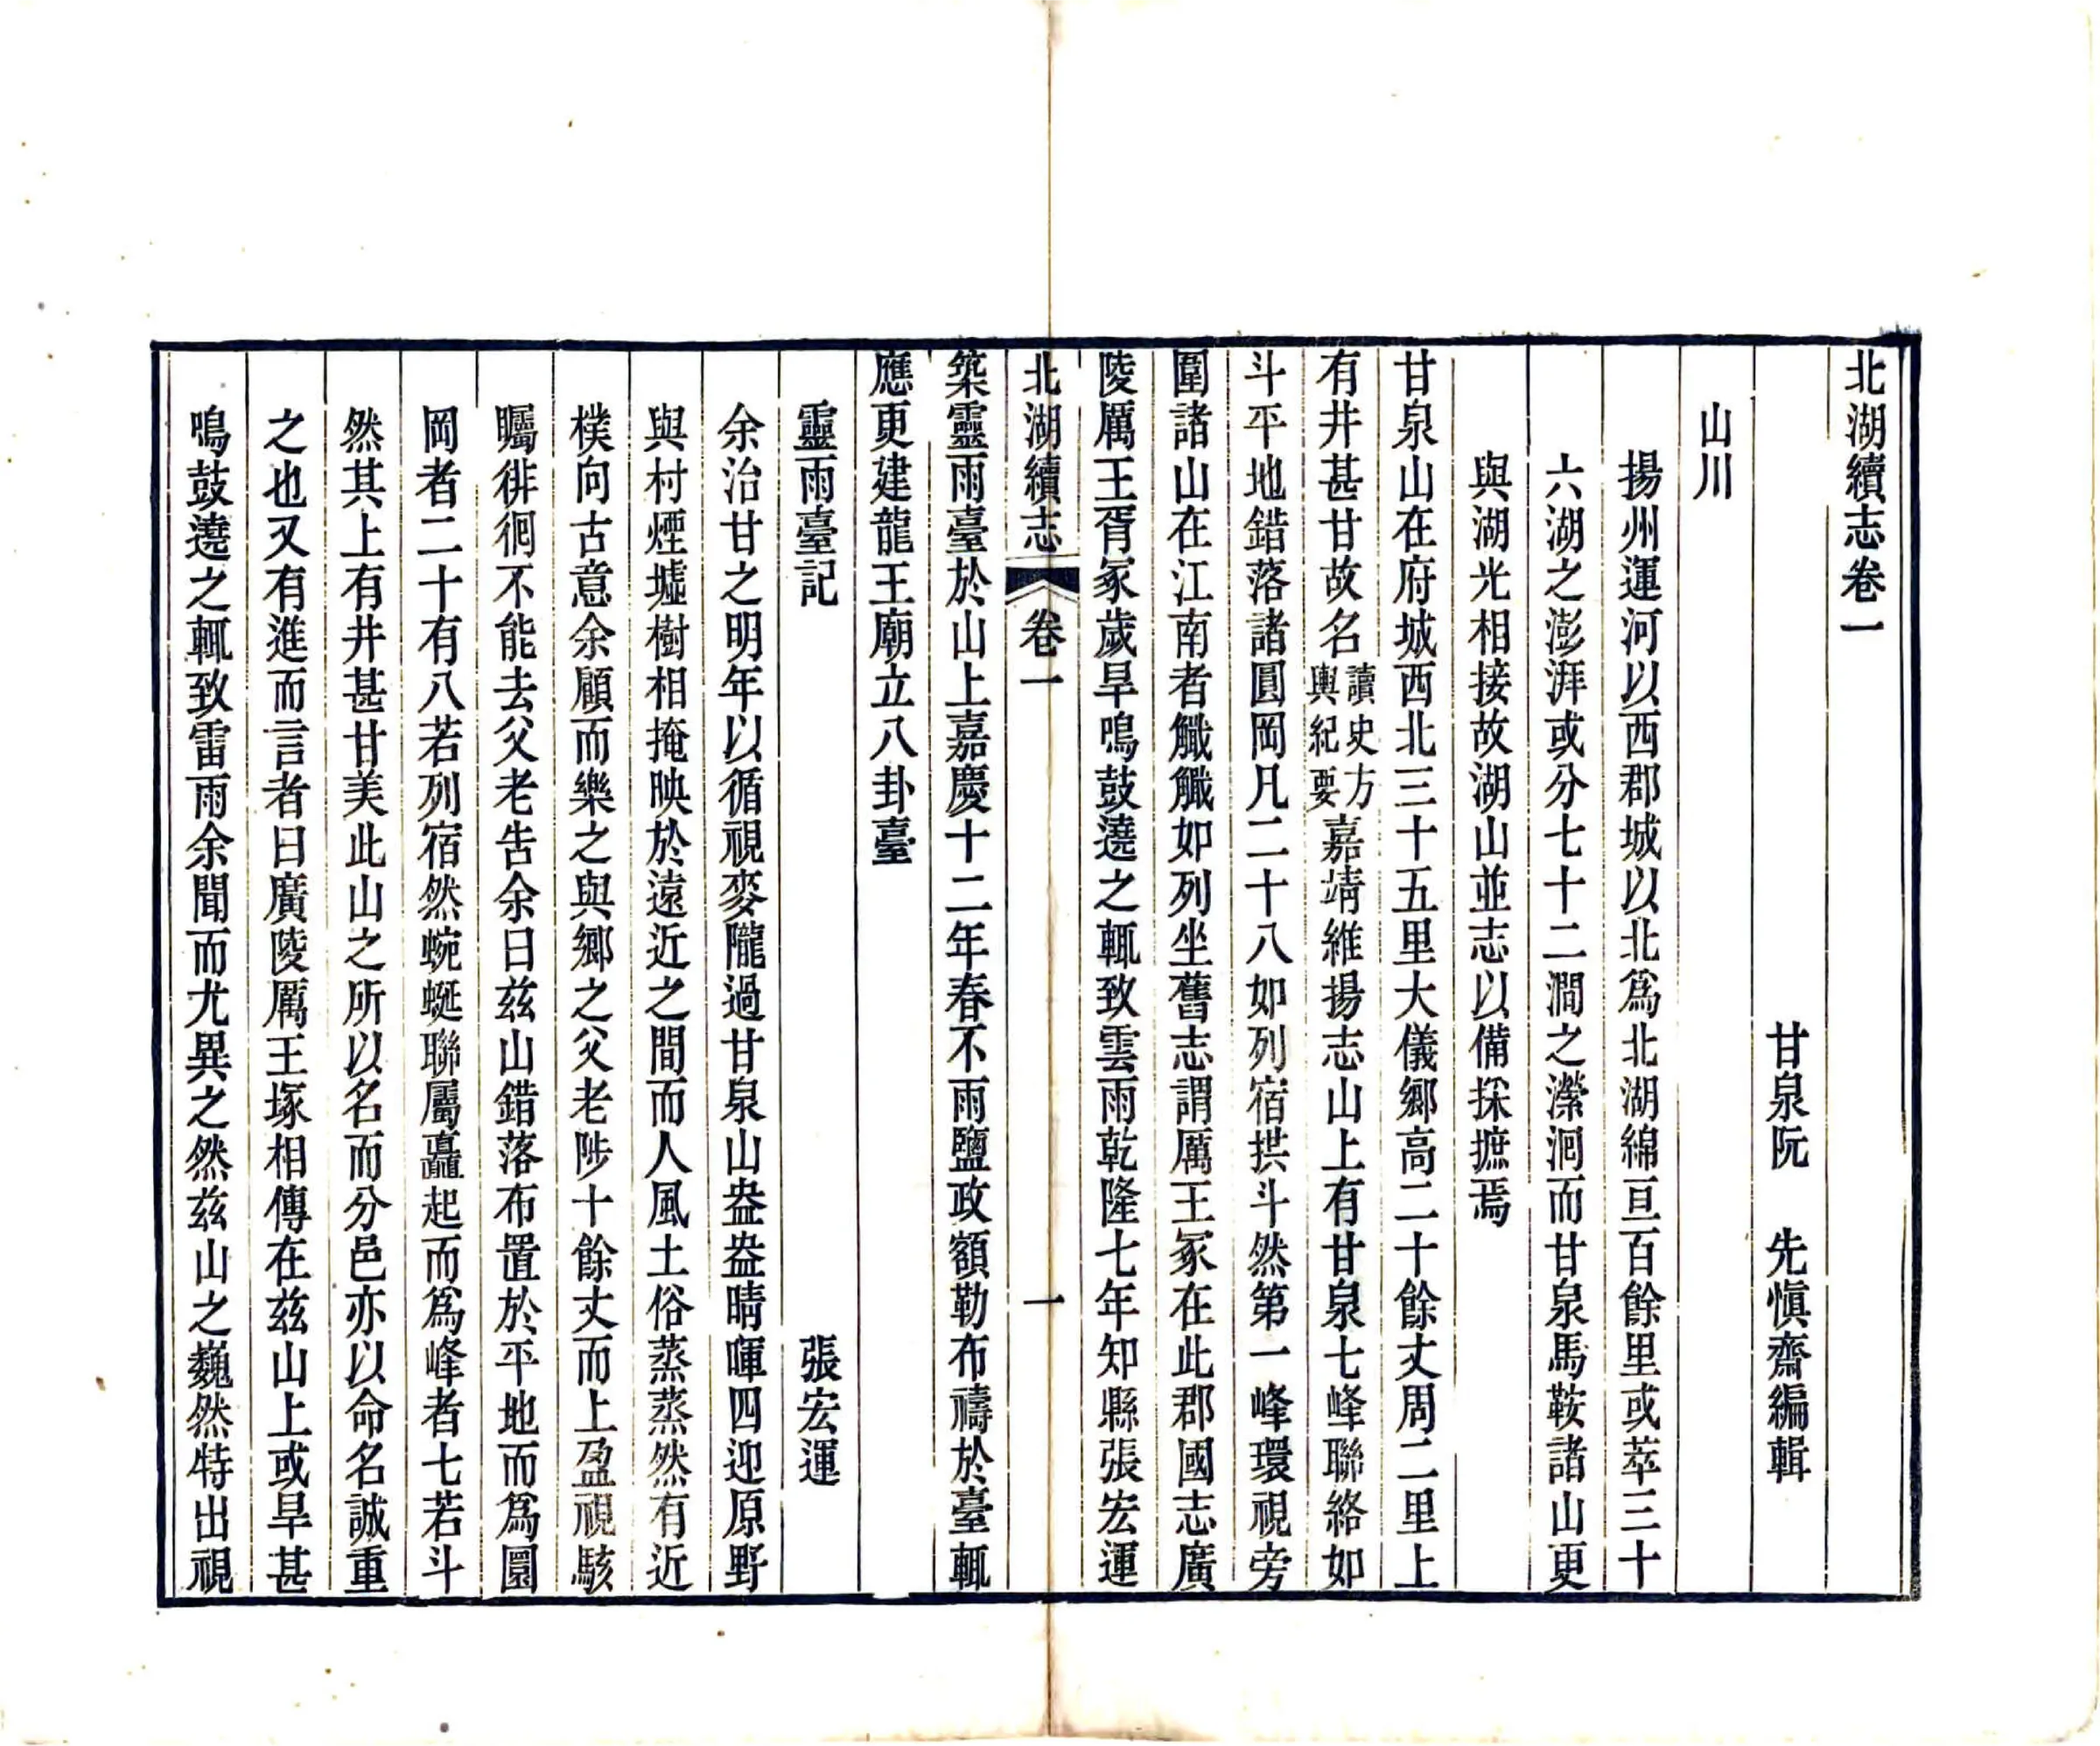 北湖續志卷一
甘泉阮　先愼齋編輯
山川
揚州運河以西郡城以北爲北湖綿亘百餘里或萃三十
六湖之澎湃或分七十二澗之瀠洄而甘泉馬鞍諸山更
與湖光相接故湖山並志以備採摭焉
甘泉山在府城西北三十五里大儀鄉高二十餘丈周二里上
有井甚甘故名讀史方輿紀要嘉靖維揚志山上有甘泉七峰聯絡如
斗平地錯落諸圓岡凡二十八如列宿拱斗然第一峰環視旁
圍諸山在江南者觿觿如列坐舊志謂厲王冢在此郡國志廣
陵厲王胥冢歲旱鳴鼓遶之輒致雲雨乾隆七年知縣張宏運
北湖續志　卷一　一
築靈雨臺於山上嘉慶十二年春不雨鹽政額勒布禱於臺輒
應更建龍王廟立八卦臺
靈雨臺記　張宏運
余治甘之明年以循視麥隴過甘泉山盎盎晴暉四迎原野
與村煙墟樹相掩映於遠近之間而人風土俗蒸蒸然有近
樸向古意余顧而樂之與鄉之父老陟十餘丈而上盈視駭
矚徘徊不能去父老告余曰兹山錯落布置於平地而爲圓
岡者二十有八若列宿然蜿蜒聯屬矗起而爲峰者七若斗
然其上有井甚甘美此山之所以名而分邑亦以命名誠重
之也又有進而言者曰廣陵厲王塚相傳在兹山上或旱甚
鳴鼓遶之輒致雷雨余聞而尤異之然兹山之巍然特出視